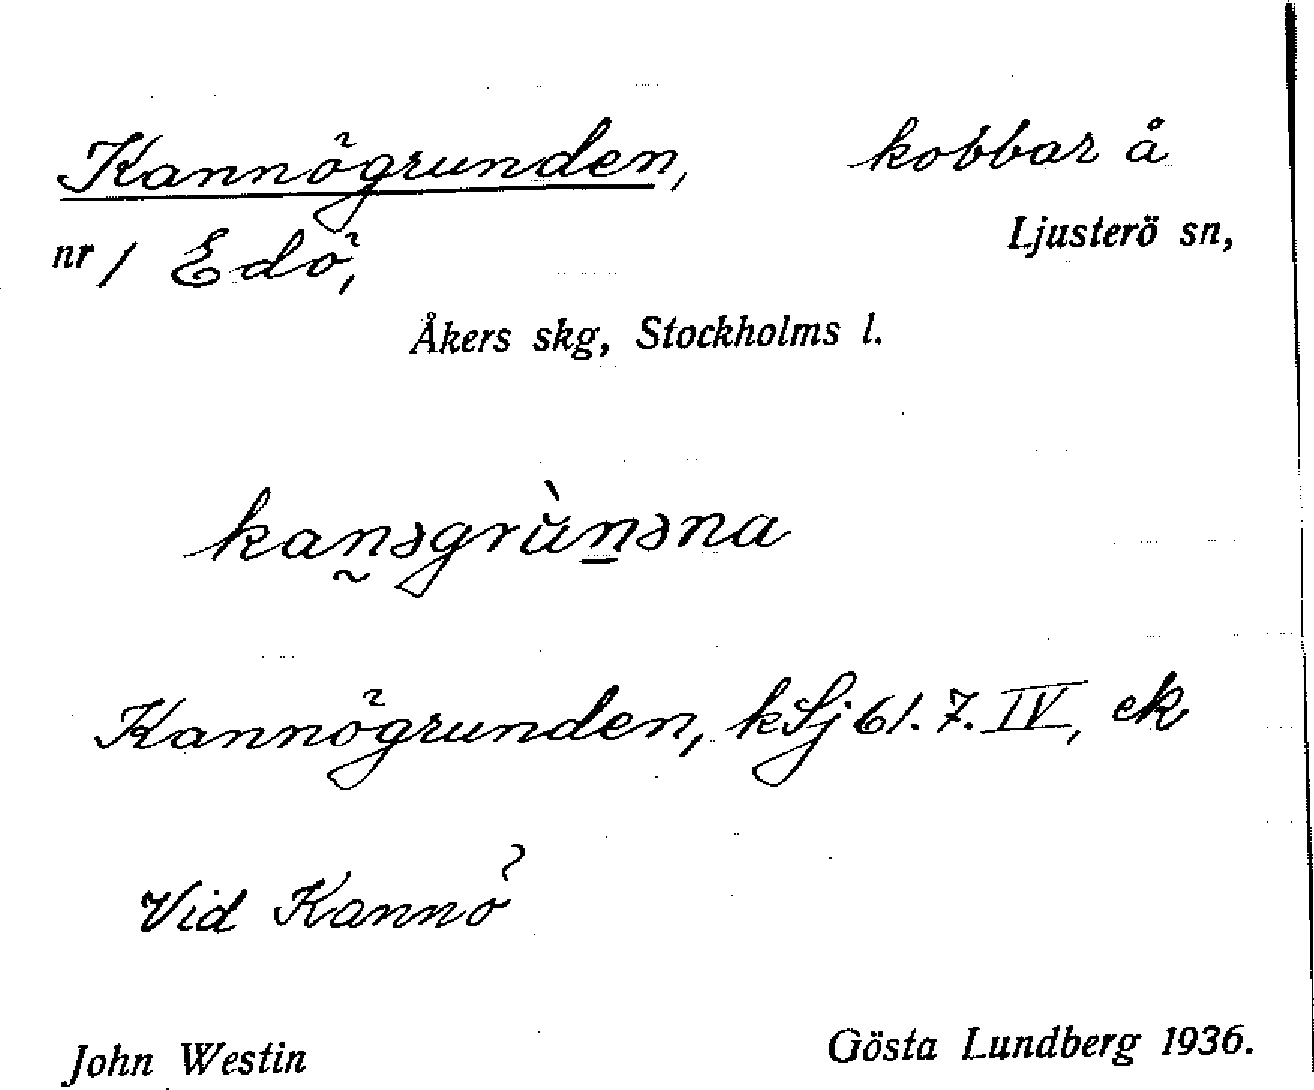 Kannögrunden, kobbar å
nr 1 Edö, Ljusterö sn,
Åkers skg, Stockholms l.
kan̰əgrùn̲əna
Kannögrunden, kSj 61. 7. IV, ek
Vid Kannö
John Westin Gösta Lundberg 1936.